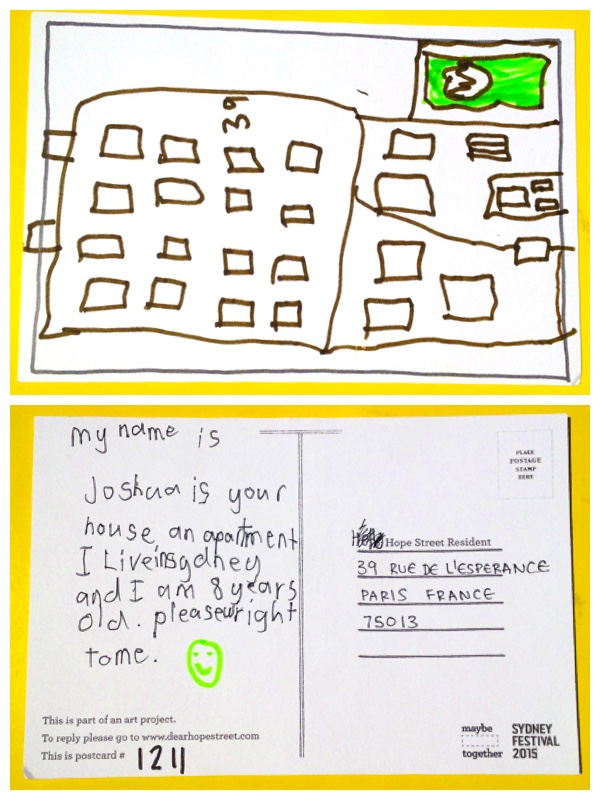 39
my name is
Joshua is your
house an apartment
I Liveinsydney
and I am 8 years
old. pleasewright
tome.
This is part of an art project.
To reply please go to www.dearhopestreet.com
This is postcard # 1211
PLACE
POSTAGE
STAMP
HERE
Hope Street Resident
39 RUE DE L'ESPERANCE
PARIS FRANCE
75013
maybe
together
SYDNEY
FESTIVAL
2015